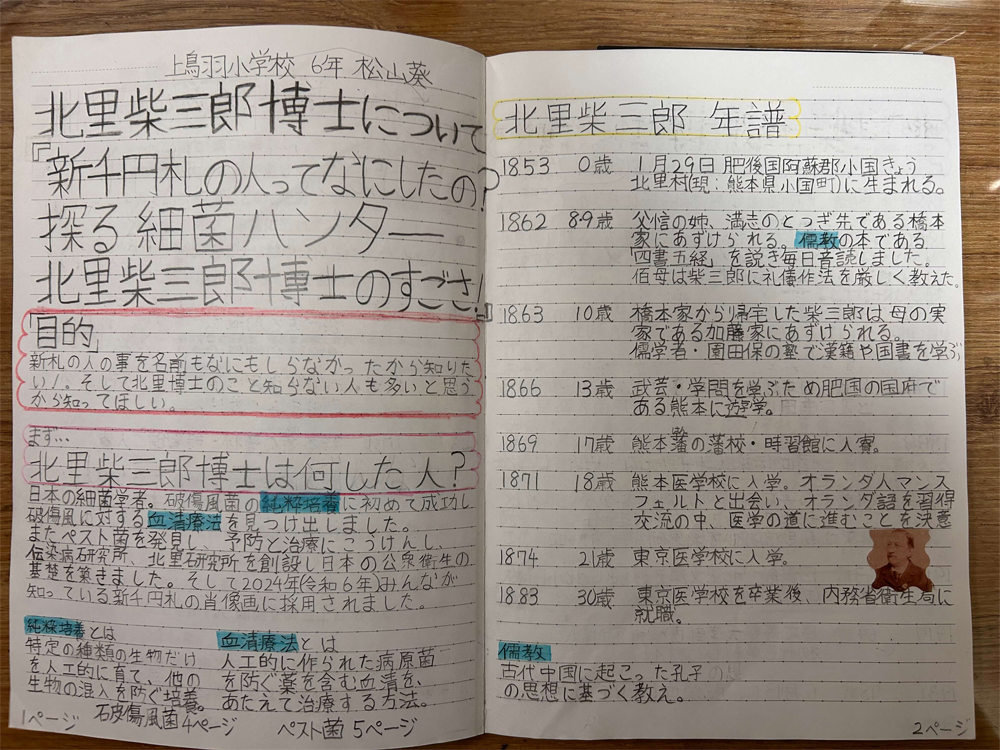 上鳥羽小学校 6年 松山葵
北里柴三郎博士について
『新千円札の人ってなにしたの?
探る細菌ハンター
北里柴三郎博士のすごさ!』
「目的」
新札の人の事を名前もなにもしらなかったから知りた
い!。そして北里博士のこと知らない人も多いと思う
から知ってほしい。
まず…
北里柴三郎博士は何した人?
日本の細菌学者。破傷風菌の純粋培養に初めて成功し
破傷風に対する血清療法を見つけ出しました。
またペスト菌を発見し、予防と治療にこうけんし、
伝染病研究所、北里研究所を創設し日本の公衆衛生の
基礎を築きました。そして2024年(令和6年)みんなが
知っている新千円札の肖像画に採用されました。
純粋培養とは
特定の種類の生物だけ
を人工的に育て、他の
生物の混入を防ぐ培養。
血清療法とは
人工的に作られた病原菌
を防ぐ薬を含む血清を、
あたえて治療する方法。
1ページ
破傷風菌4ページ
ペスト菌 5ページ
北里柴三郎 年譜
1853 0歳 1月29日 肥後国阿蘇郡小国きょう
北里村(現:熊本県小国町)に生まれる。
1862 8-9歳 父信の姉、満志のとつぎ先である橋本
家にあずけられる。儒教の本である
「四書五経」を説き毎日音読しました。
伯母は柴三郎に礼儀作法を厳しく教えた。
1863 10歳 橋本家から帰宅した柴三郎は母の実
家である加藤家にあずけられる。
儒学者・園田保の塾で漢籍や国書を学ぶ
1866 13歳 武芸・学問を学ぶため肥国の国府で
ある熊本に遊学。
1869 17歳 熊本藩の藩校・時習館に入寮。
1871 18歳 熊本医学校に入学。オランダ人マンス
フェルトと出会い、オランダ語を習得
交流の中、医学の道に進むことを決意
1874 21歳 東京医学校に入学。
1883 30歳 東京医学校を卒業後、内務省衛生局に
就職。
儒教
古代中国に起こった孔子
の思想に基づく教え。
2ページ